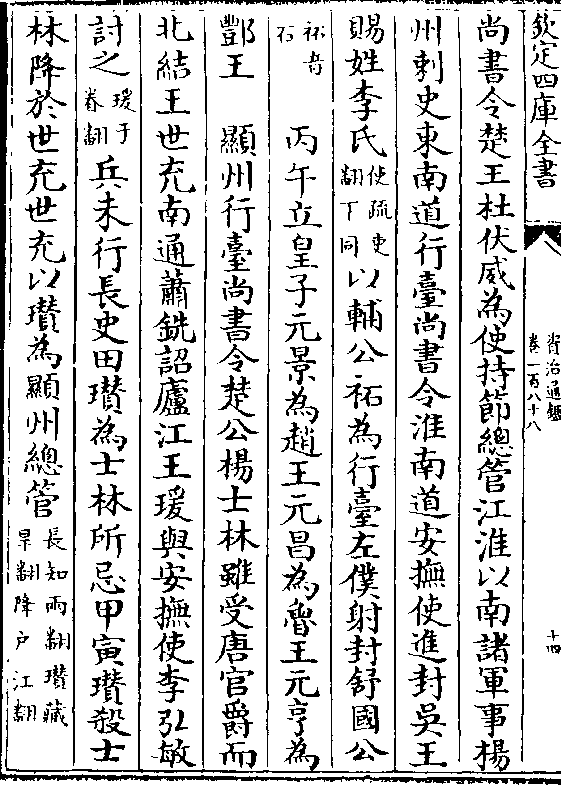 欽定四庫全書
資治通鑑
卷一百八十八
十四
尚書令楚王杜伏威為使持節總管江淮以南諸軍事楊
州刺史東南道行臺尚書令淮南道安撫使進封吳王
賜姓李氏使疏吏翻下同以輔公祏為行臺左僕射封舒國公
祏音石 丙午立皇子元景為趙王元昌為魯王元亨為
酆王 顯州行臺尚書令楚公楊士林雖受唐官爵而
北結王世充南通蕭銑詔廬江王瑗與安撫使李弘敏
討之瑗于眷翻兵未行長史田瓚為士林所忌甲寅瓚殺士
林降於世充世充以瓚為顯州總管長知兩翻瓚藏旱翻降戶江翻